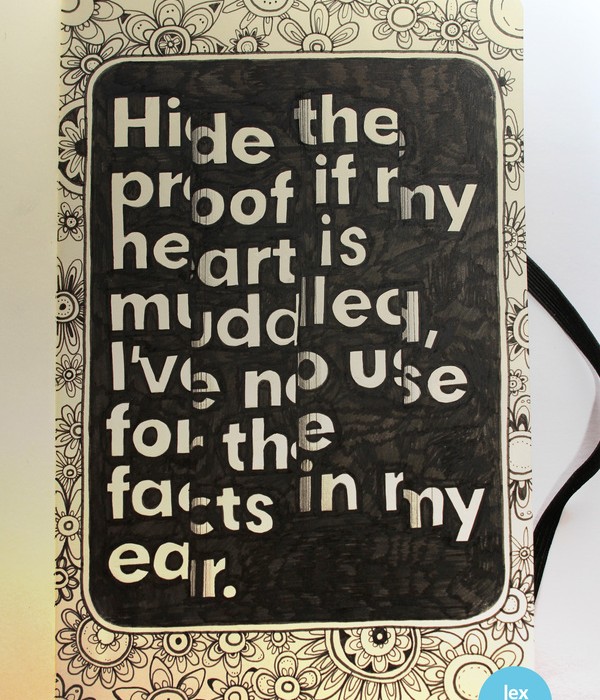 Hide the
proof if my
heart is
muddled,
I've no use
for the
facts in my
ear.
lex